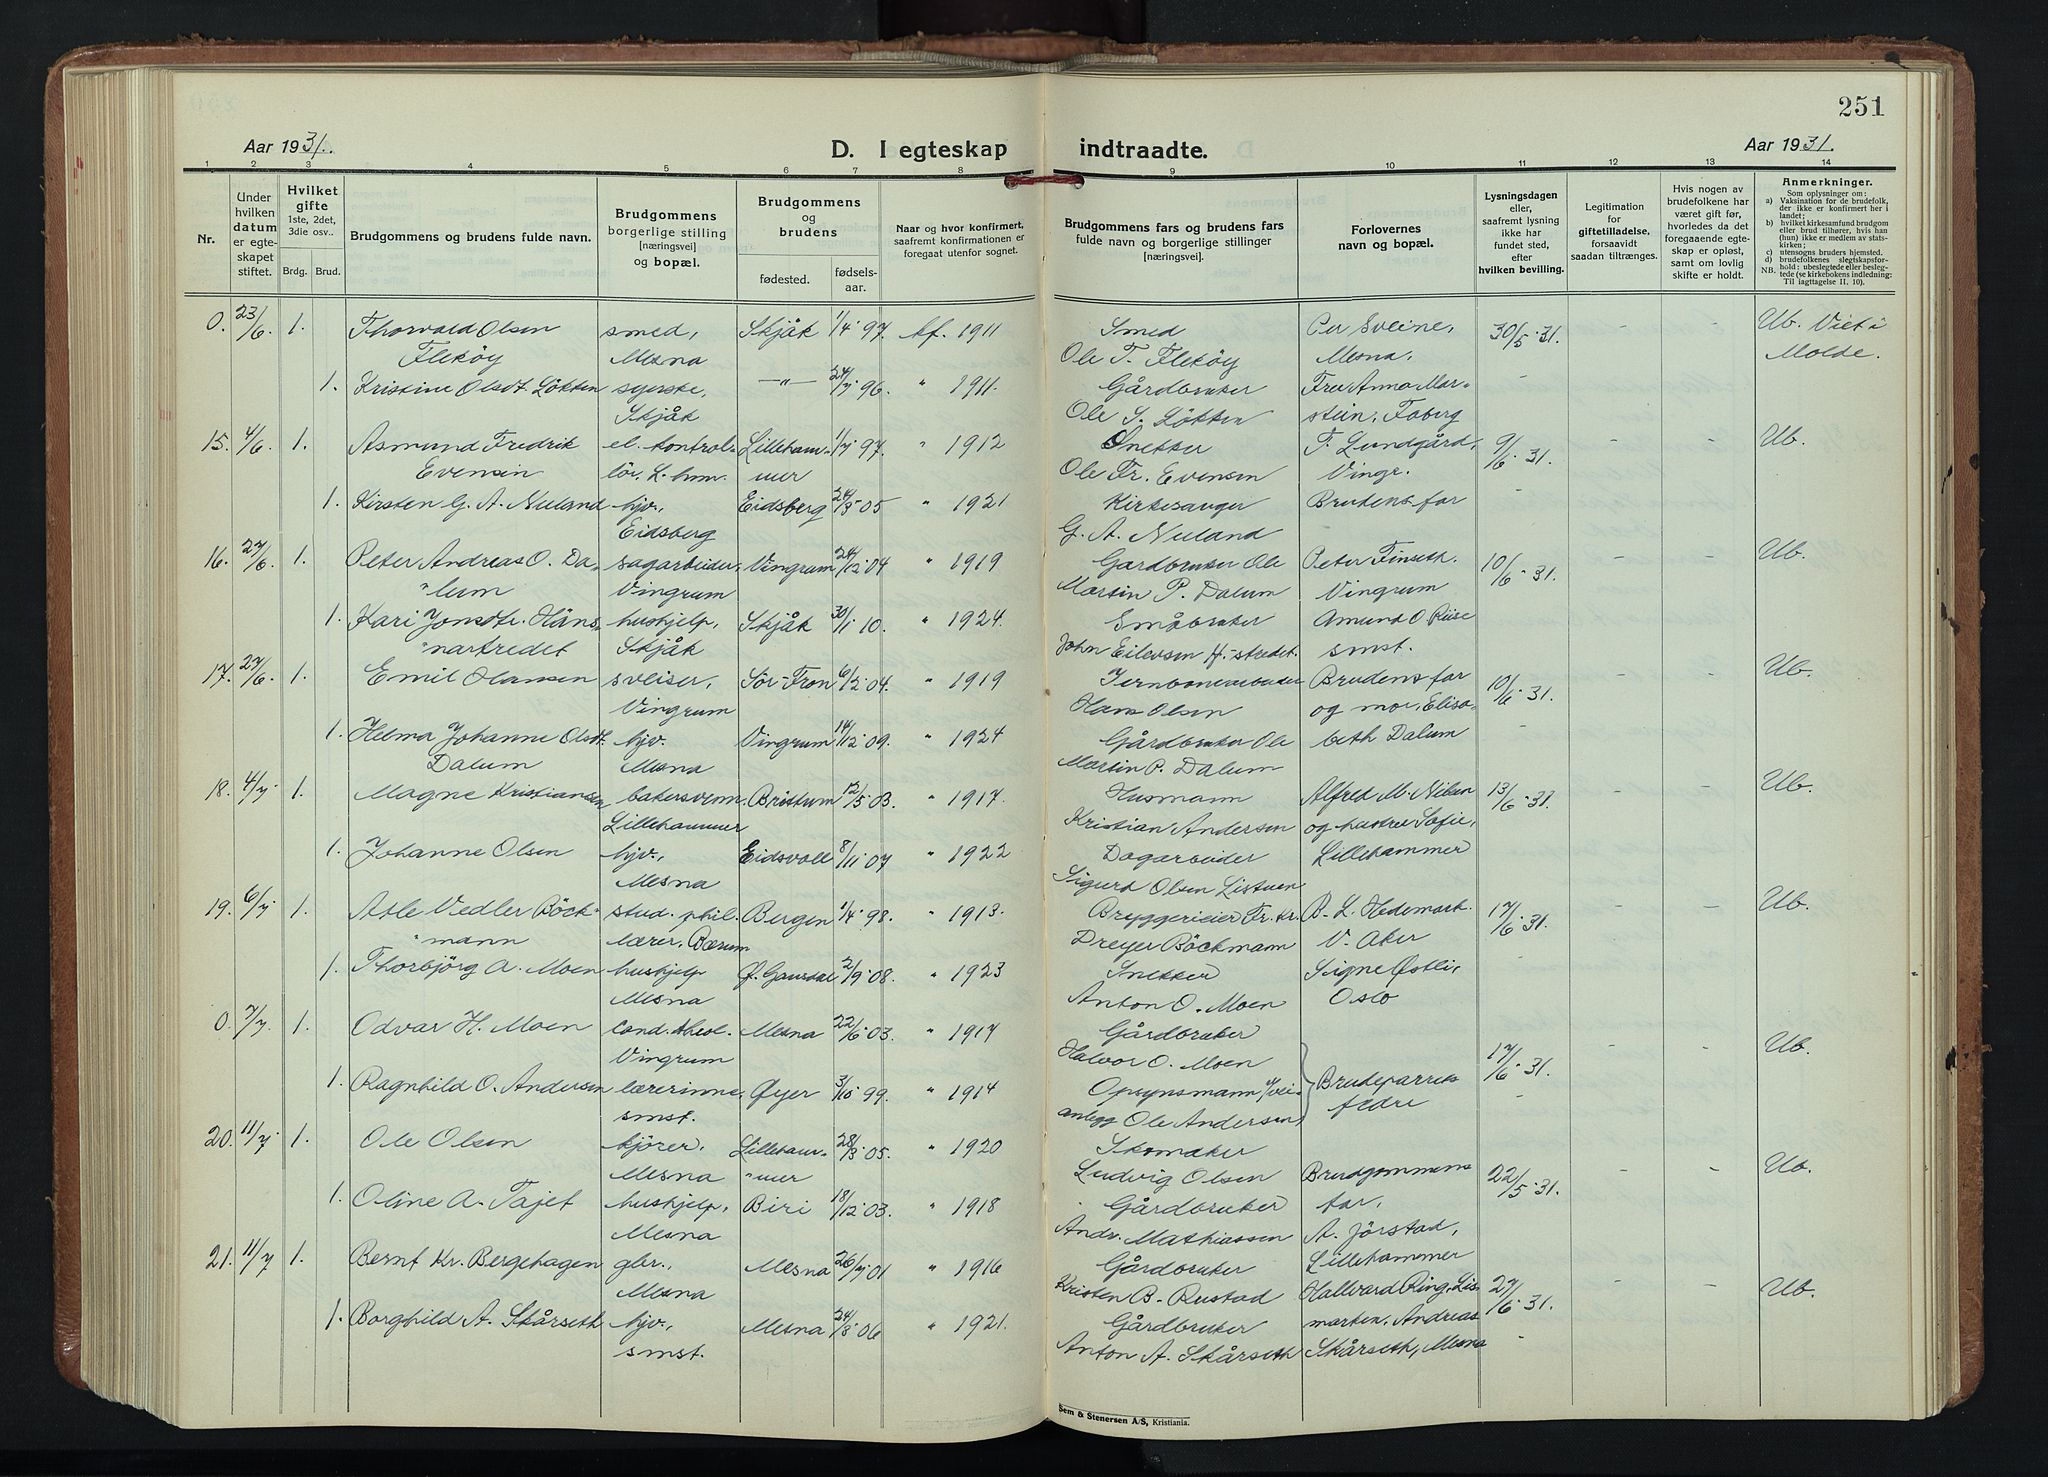 251
Aar 1931.
D. I egteskap indtraadte.
Aar 1931.
1 2 3 4 5 6 7 8 9 10 11 12 13 14
Nr.
Under hvilken datum er egteskapet stiftet.
Hvilket gifte 1ste, 2det, 3die osv..
Brdg. Brud.
Brudgommens og brudens fulde navn.
Brudgommens borgerlige stilling [næringsvei] og bopæl.
Brudgommens og brudens
fødested. fødselsaar.
Naar og hvor konfirmert, saafremt konfirmationen er foregaat utenfor sognet.
Brudgommens fars og brudens fars fulde navn og borgerlige stillinger [næringsvei].
Forlovernes navn og bopæl.
Lysningsdagen eller, saafremt lysning ikke har fundet sted, efter hvilken bevilling.
Legitimation for giftetilladelse, forsaavidt saadan tiltrænges.
Hvis nogen av brudefolkene har været gift før, hvorledes da det foregaaende egteskap er opløst, samt om lovlig skifte er holdt.
Anmerkninger.
Som oplysninger om:
a) Vaksination for de brudefolk, der ikke er konfirmert her i landet;
b) hvilket kirkesamfund brudgom eller brud tilhører, hvis han (hun) ikke er medlem av statskirken;
c) utensogns bruders hjemsted.
d) brudefolkenes slegtskapsforhold: ubeslegtede eller beslegtede (se kirkebokens indledning: Til iagttagelse II. 10).
NB.
0. 23/6 1. Thorvald Olsen smed, Skjåk 1/4 97. kf. 1911 Smed Per Sveine, 30/5 31. - - Ub. Viet i
Flekøy Mesna Ole T. Flekøy Mesna. Molde.
1. Kristine Olsdt. Løkken syerske, —"— 24/7 96. " 1911. Gårdbruker Fru Anna Mar- -
Skjåk Ole S. Løkken stein, Faberg
15. 4/6 1. Asmund Fredrik el. kontrol- Lilleham- 1/7 97. " 1912 Snekker F. Lundgård, 9/6 31. - - Ub.
Evensen lør, L.hmr. mer Ole Fr. Evensen Vingr.
1. Kirsten G. A. Neuland hjv., Eidsberg 24/3 05 " 1921 Kirkesanger Brudens far -
Eidsberg G. A. Neuland
16. 27/6 1. Peter Andreas O. Da- sagarbeider, Vingrum 24/12 04 " 1919 Gårdbruker Ole Peter Finseth. 10/6 31. - - Ub.
"lum Vingrum Martin P. Dalum Vingrum
1. Kari Jonsdtr. Håns- hushjelp, Skjåk 30/1 10. " 1924. Småbruker Amund O Riise -
"nartredet Skjåk John Eilevsen H.-stredet. smst.
17. 27/6 1. Emil Hansen sveiser, Sør-Fron 6/2 04. " 1919 Jernbanearbeider Brudens far 10/6 31. - - Ub.
Vingrum Hans Olsen og mor, Elisa-
1. Helma Johanne Olsdt. hjv. Vingrum 14/12 09. " 1924 Gårdbruker Ole beth Dalum -
Dalum Mesna Martin P. Dalum
18. 4/7 1. Magne Kristiansen bakersvenn, Brøttum 12/5 03. " 1917. Husmann Alfred M. Nilsen 13/6 31. - - Ub.
Lillehammer Kristian Andersen og hustru Sofie,
1. Johanne Olsen hjv., Eidsvoll 8/11 07 " 1922 Dagarbeider Lillehammer
Mesna Sigurd Olsen Listuen
19. 6/7 1. Atle Vedler Böck- stud. phil. Bergen 1/4 98. " 1913. Bryggerieier Fr. Kr. B. L. Hedemark. 17/6 31. - - Ub.
"mann lærer. Bærum Dreyer Böckmann V. Aker
1. Thorbjörg A. Moen hushjelp Ø. Gausdal 2/9 08. " 1923 Snekker Signe Østli,
Mesna Anton O. Moen Oslo
0. 7/7 1. Odvar H. Moen Cand. theol. Mesna 22/6 03. " 1917 Gårdbruker - - Ub.
Vingrum Halvor O. Moen 17/6 31.
1. Ragnhild O. Andersen lærerinne, Øyer 3/10 99. " 1914 Opsynsmann v/vei- Brudeparrets
smst. anlegg Ole Andersen fedre
20. 11/7 1. Ole Olsen kjører, Lilleham- 28/3 05. " 1920 Skomaker - - Ub.
Mesna "mer Ludvig Olsen Brudgommens 22/5 31.
1. Oline A. Tajet hushjelp, Biri 18/12 03. " 1918 Gårdbruker far,
Mesna Andr. Mathiassen A. Jørstad,
21. 11/7 1. Bernt Kr. Bergehagen gbr., Mesna 26/7 01 " 1916 Gårdbruker Lillehammer
Mesna Kristen B. Rustad Hallvard Ring, Lis- 27/6 31. - - Ub.
1. Borghild A. Skårseth hjv., Mesna 24/8 06 " 1921. Gårdbruker marken. Andreas
smst. Anton A. Skårseth Skårseth, Mesna -
Sem & Stenersen A/S, Kristiania.